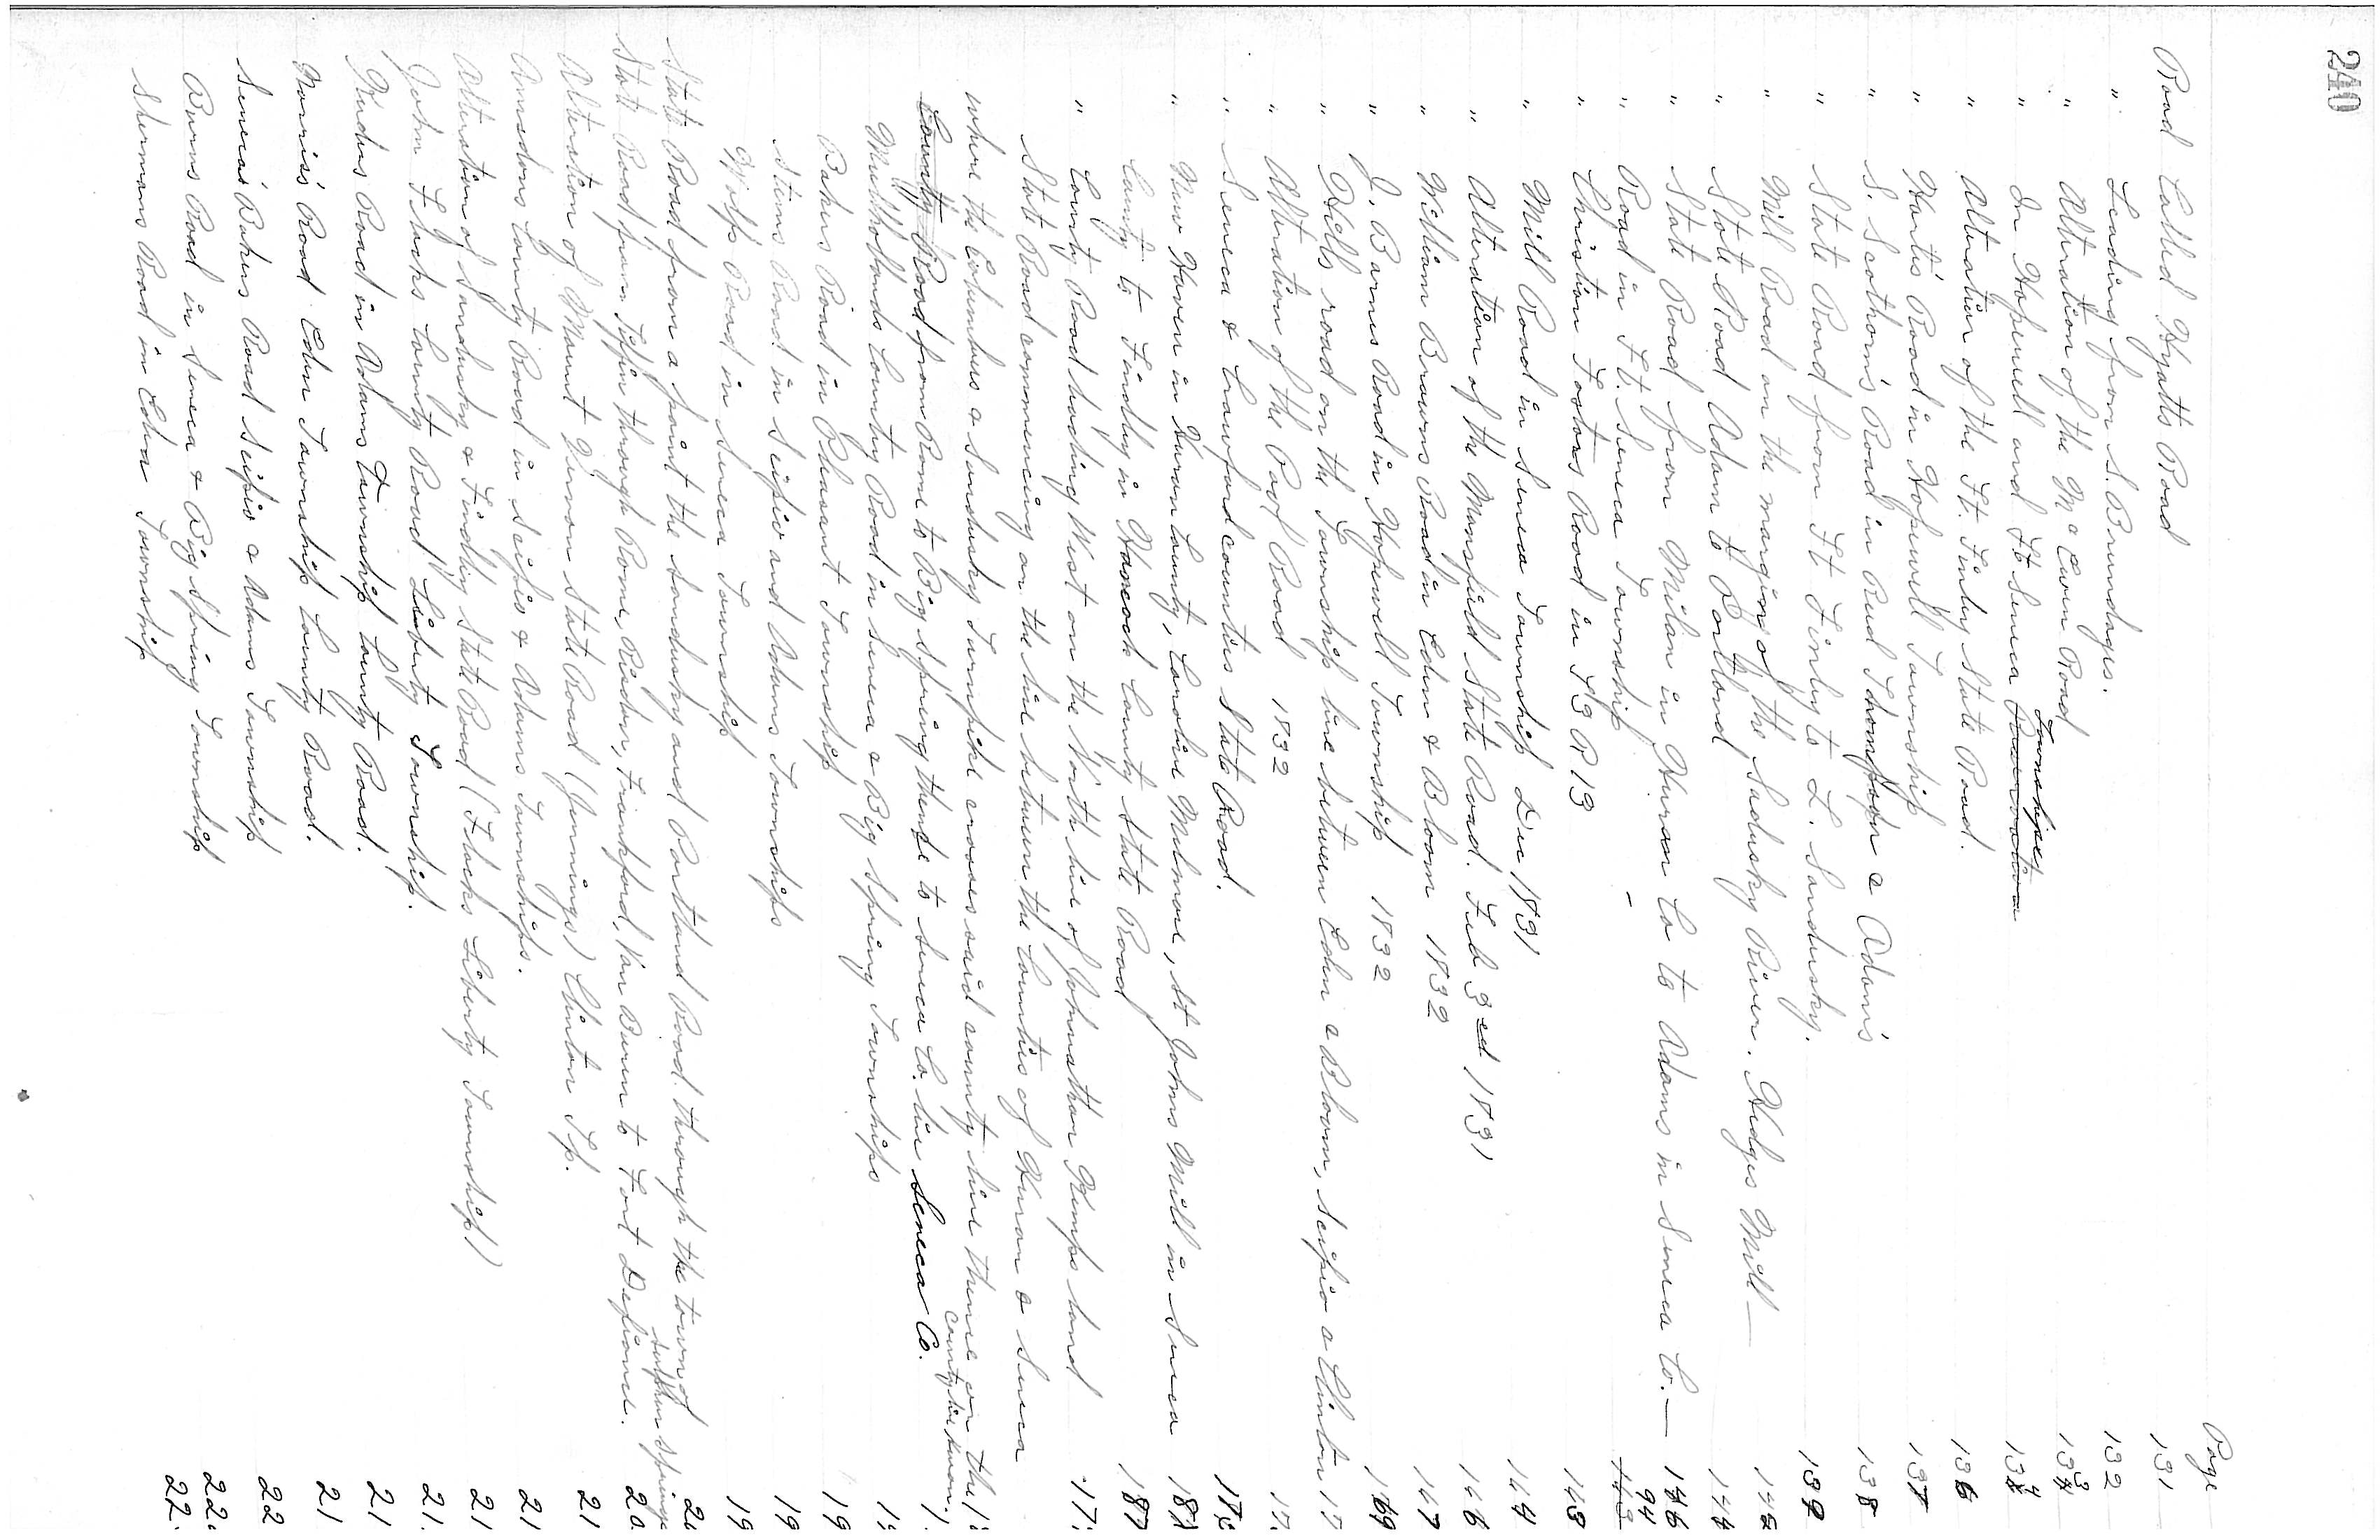 240
Page
Road Called Hyatts Road 131
" Leading from S. Brundages. 132
" Alteration of the McEwen Road 133
" In Hopewell and Ft. Seneca Townships 134
" Alteration of the Ft. Finley State Road. 136
" Harts Road in Hopewell Township 137
" S. Scothorn's Road in Reed Thompson & Adams 138
" State Road from Ft Finley to L. Sandusky. 139
" Mill Road on the margin of the Sadusky River. Hedges Mill —
" State Road Adam to Portland
" State Road from Milan in Huron Co to Adams in Seneca Co. — 146
" Road in Ft. Seneca Township
" Christian Fosters Road in T3 R 13 143
" Mill Road in Seneca Township Dec 1831 144
" Alteration of the Mansfield State Road. Feb 3rd 1831 146
" William Browns Road in Eden & Bloom 1832 147
" J. Barnes Road in Hopewell Township 1832 169
" Hells road on the Township line between Eden & Bloom, Scipio & Clinton 17
" Alteration of the Coof Road 1832 17
" Seneca & Crawford counties State Road.
" New Haven in Huron County, Caroline Melmore, St Johns Mill in Seneca
County to Findley in Hancock County State Road 187
" County Road heading West on the North line of Johnathan Kemps land 17
State Road commencing on the line between the Counties of Huron & Seneca
where the Columbus & Sandusky Turnpike crosses said county line thence on the
County Road from Rome to Big Spring thence to Seneca Co. line Seneca Co.
Mulhollands County Road in Seneca & Big Spring Townships
Bakers Road in Pleasant Township 19
Stems Road in Scipio and Adams Townships 19
Wolfs Road in Seneca Township 19
State Road from a point the Sandusky and Portland Road. through the town of Sulphur Springs
State Road from Tiffin through Rome, Risdon, Frankford, Van Buren to Fort Defiance. 20
Alteration of Mount Vernon State Road (Jennings) Clinton Tp. 21
Amsdens County Road in Scipio & Adams Townships. 21
Alteration of Sandusky & Findley State Road (Flacks Liberty Township) 21
John Flacks County Road Liberty Township. 21
Kuders Road in Adams Township County Road. 21
Norris's Road Eden Township County Road. 21
Seneca's Bakers Road Scipio & Adams Township 22
Burns Road in Seneca & Big Spring Township 22
Shermans Road in Eden Township 22